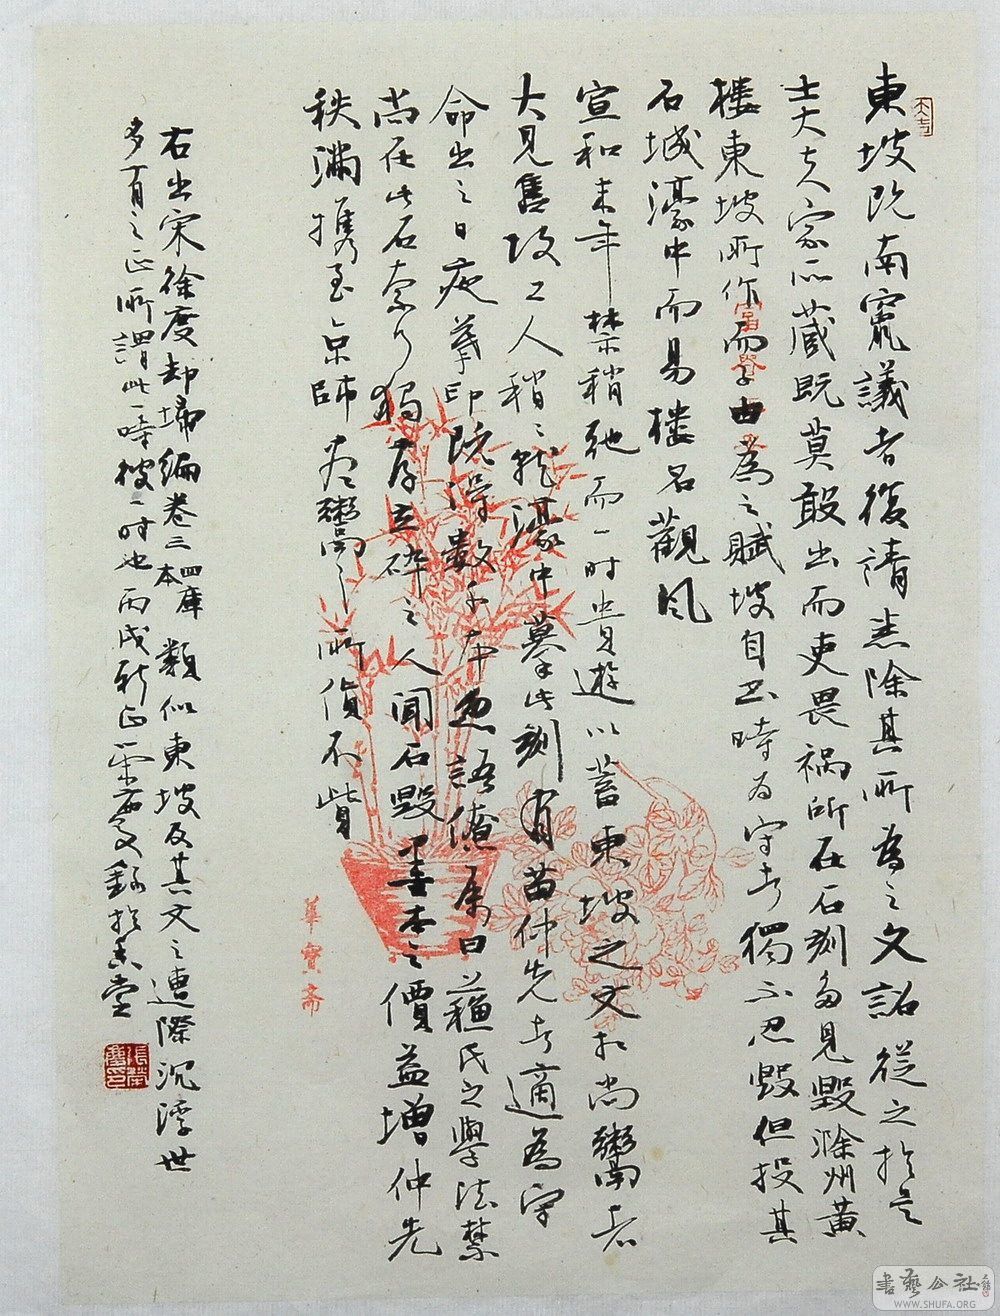 東坡既南竄議者復請悉除其所為之文詔從之於是
士大夫家所藏既莫敢出而吏畏禍所在石刻多見毀滁州黃
樓東坡所作而子由為之賦坡自書時為守者獨不忍毀但投其
石城濠中而易樓名觀風
宣和末年禁稍弛而一時貴遊以蓄東坡之文相尚鬻者
大見售故工人稍〻就濠中摹此刻有苗仲先者適為守
命出之日夜摹印既得數千本忽語僚屬曰蘇氏之學法禁
尚在此石奈何獨存立碎之人聞石毀墨本之價益增仲先
秩滿攜至京師盡鬻之所獲不貲
右出宋徐度却埽編卷三四庫本類似東坡及其文之遭際沉浮世
多有之正所謂此一時彼一時也丙戌新正榮慶錄於堂
華寶齋
張榮慶印
書藝公社
WWW.SHUFA.ORG